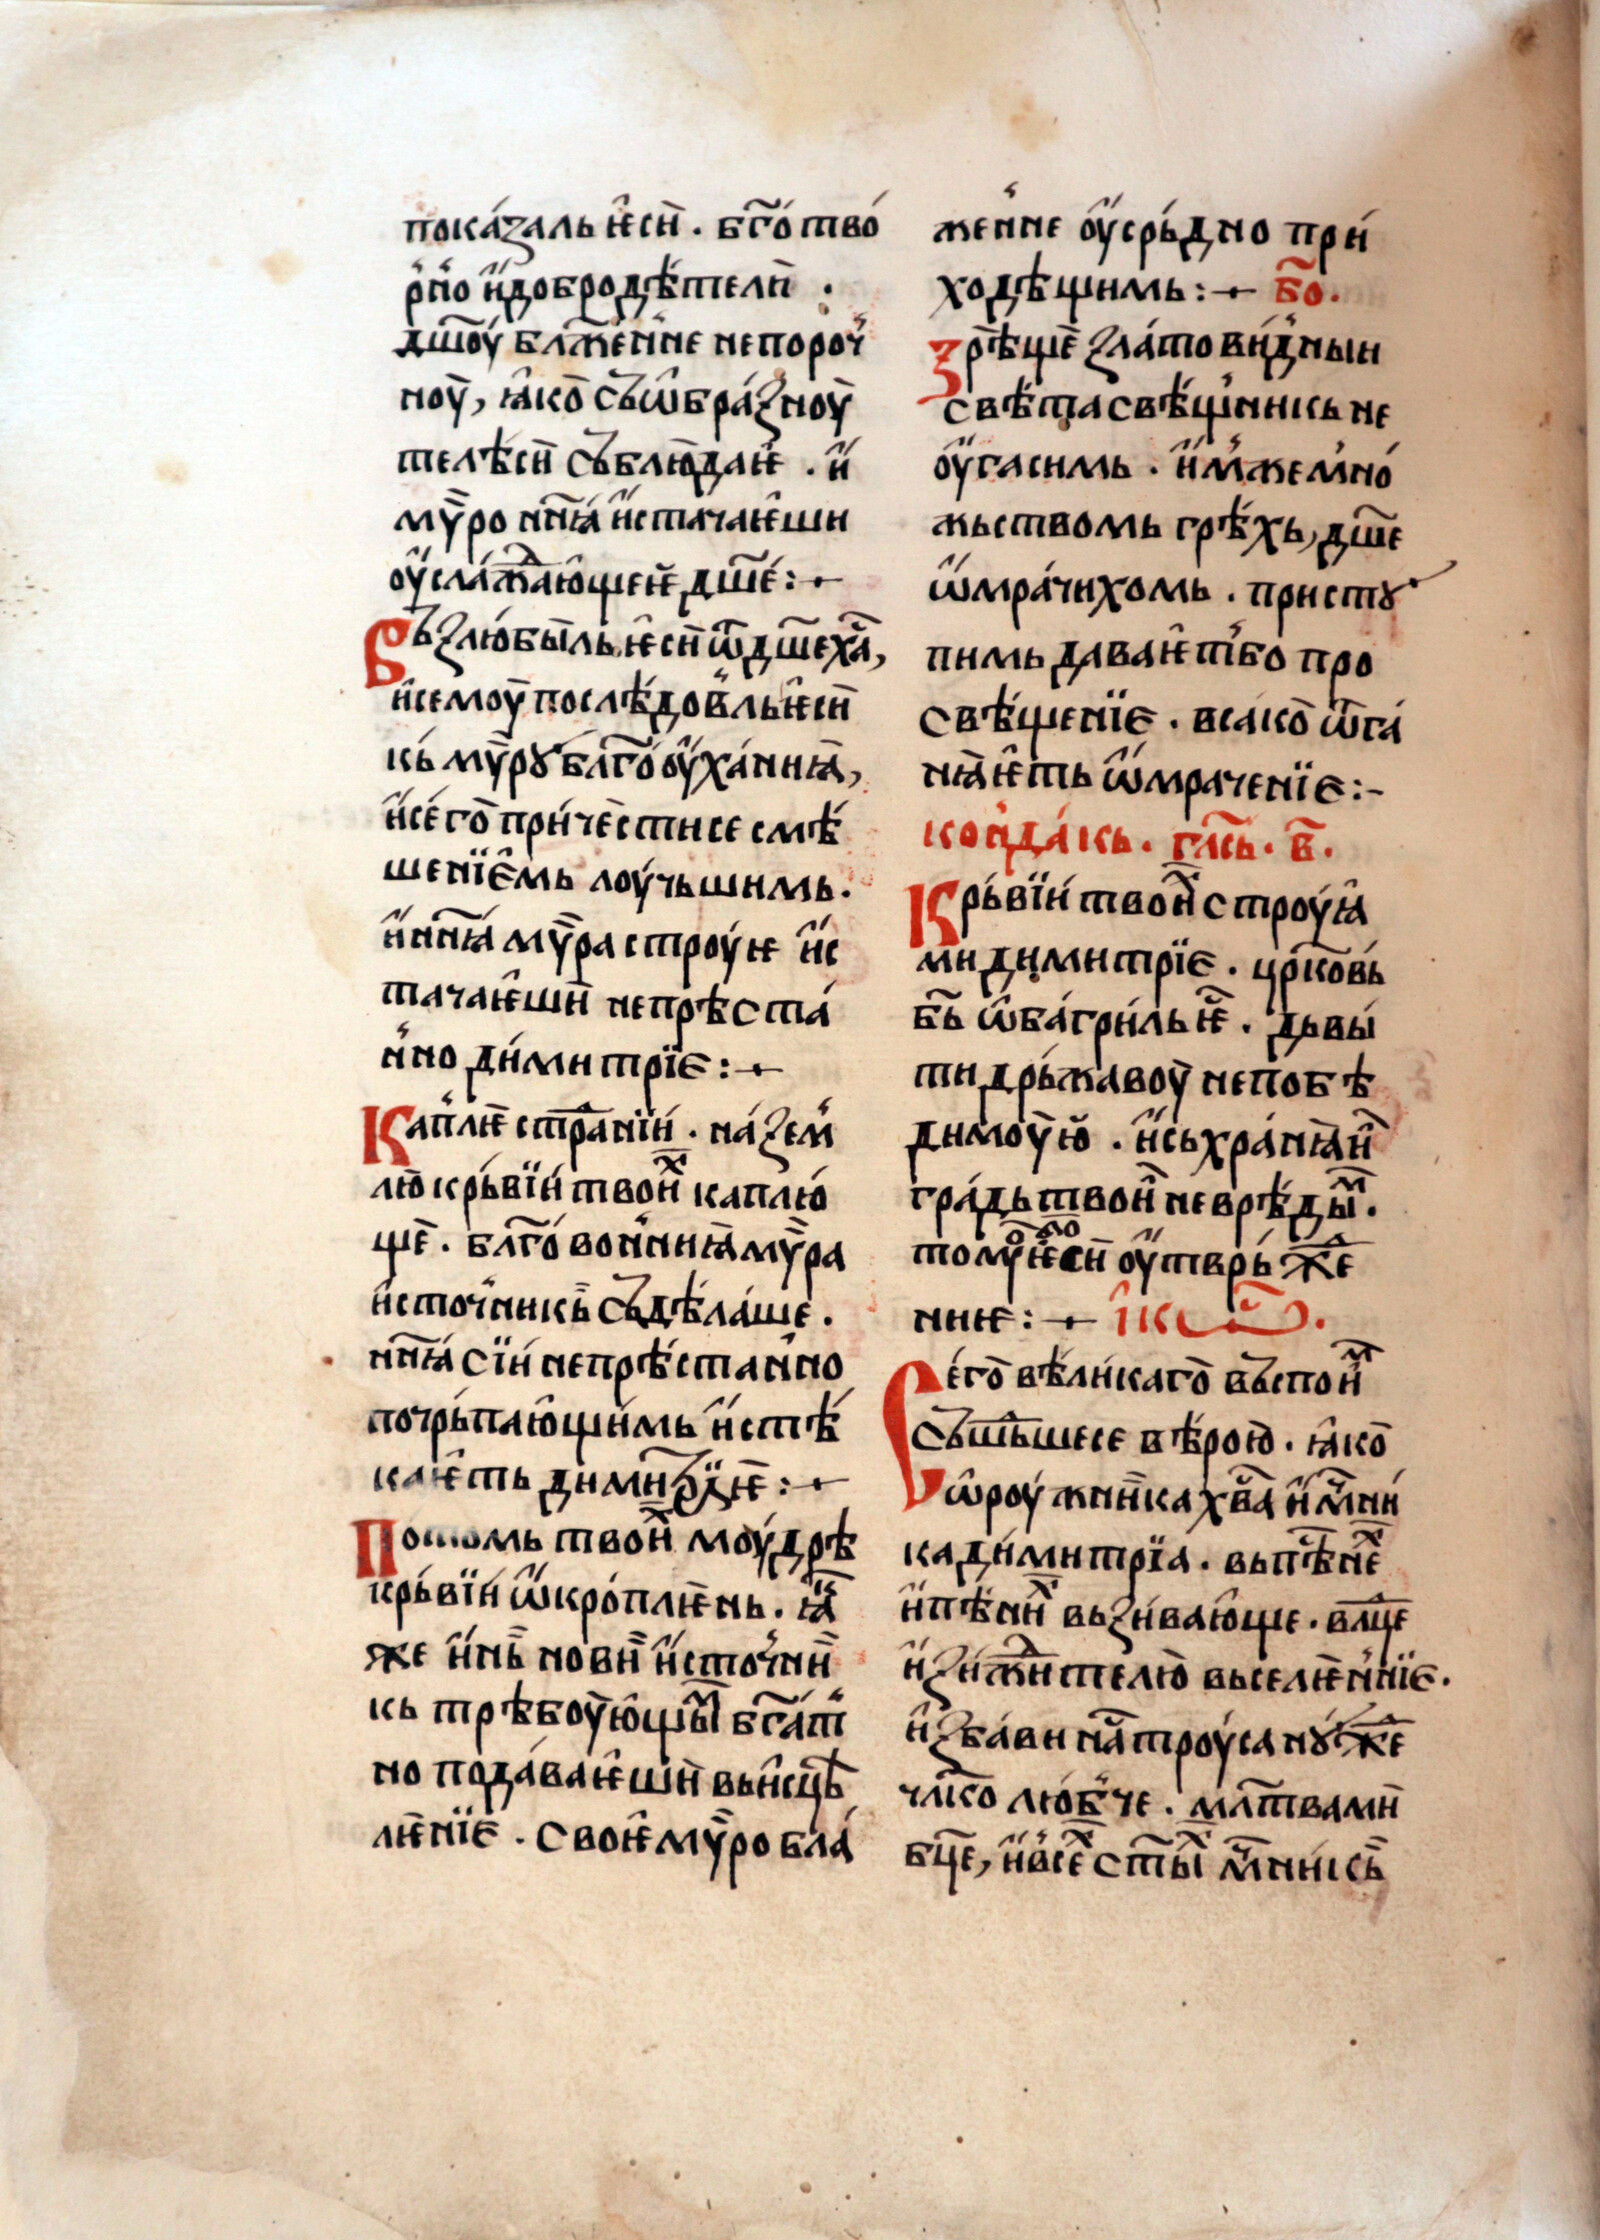 пока́залъ ѥ҆сѝ . бг҃о́ тво́
р̾но и҆ до́бродѣ́телѝ .
дш҃оу́ бл҃же́н̾не непоро́ч̾
ноу̀, ꙗ҆ко̀ съѡ҆бра́зноу̀
телѣ́сѝ съблю́даѥ҆ . и҆
мѵ̀ро нн҃ꙗ́ и҆стачаѥ҆ши
оу҆сла́ж҃аю҆щеѥ дш҃е́ :⁓
Възлю́би́ль ѥ҆сѝ ѿ дш҃е х҃а,
и҆семоу̀ послѣ́дов̾ль ѥ҆сѝ
кь мѵ̀рꙋ бл҃го́оу҆ха́ннꙗ̀,
и҆се́го̀ при́чѐсти се смѣ́
шенїе҆мь лоу́чьшимь .
и҆нн҃ꙗ́ мѵ̀ра строу́ѥ и҆с
тачаѥ҆шѝ непрѣста́
н̾но ди́митрїе :⁓
Ка́плѥ̀ стра҃нїи́ . на́ зем̾
лю̀ крь́вїи́ твоиⷯ каплю́
щѐ . бл҃го́ вон̾ннꙗ мѵ̀ра
и҆сточ̾никь̀ съдѣ́ла́ше .
нн҃ꙗ́ сїи́ непрѣ́стан̾но
почрь́паю҆щи́мь и҆стѣ́
каѥ҆ть димитрїѥ̀ :⁓
Потомь твоиⷯ моу́дрѣ
крь́вїи́ ѡ҆кро́плѥ̀нь . ꙗ҆
же и҆нь̀ новѝ и҆сточ̾нѝ
кь трѣ́боу̀ю҆щыⷨ бг҃а́т̾
но пода́ваѥ҆шѝ вьи҆сцѣ
лѥ̀нїѐ . своѥ҆ мѵ̀ро бла́
же́н̾не оу҆срь́дно при́
ходѣ́щимь :⁓ бо҃ .
Зрѣ́щѐ зла́тови́д̾нын
свѣ́та свѣ́щ̾никь не
оу҆гасимь . и҆м̾же м̾но́
жьствомь грѣ́хь, дш҃е
ѡ҆мра́чихомь . пристꙋ
пимь даваѥ҆т̾ бо про
свѣ́щенїе . всако̀ ѿга́
нꙗѥ҆ть ѡ҆мраченїе :-
кон̾да́кь . гла҃сь . в҃ .
Крь́вїи́ твоиⷯ строу́ꙗ҆
ми димитрїе . црк҃овь́
бь҃ ѡ҆ба́гри́ль ѥ҆ . дь вы́
ти дрь́жавоу̀ непобѣ
димоу́ю̀ . и҆сьхра́нꙗи҆
гра́дь твои҆ неврѣ́дыⷨ .
томꙋ̀ ѥ҆сѝ оу҆тврь́ ж҃е
ниѥ :⁓ і҆ко҃с .
Сего̀ вѣли́каго̀ въспои҆ⷨ
сьшь́шесе вѣ́рою̀ . ꙗ҆ко̀
ѡ҆роу́жнѝка х҃ва и҆ м҃чни́
ка ди́митрїа . вьпѣ́нⷯе
и҆пѣ́ниⷯ вьзи́ваю҆ще . вл҃це
и҆ зижи҃телю̀ вьселѥ́н̾нїе .
и҆зба́ви на҃ троу́са нꙋж҃е
чл҃ко лю́б̾че . мл҃твами̇
бц҃е, и҆всеⷯ ст҃ыⷯ м҃чни́кь̀